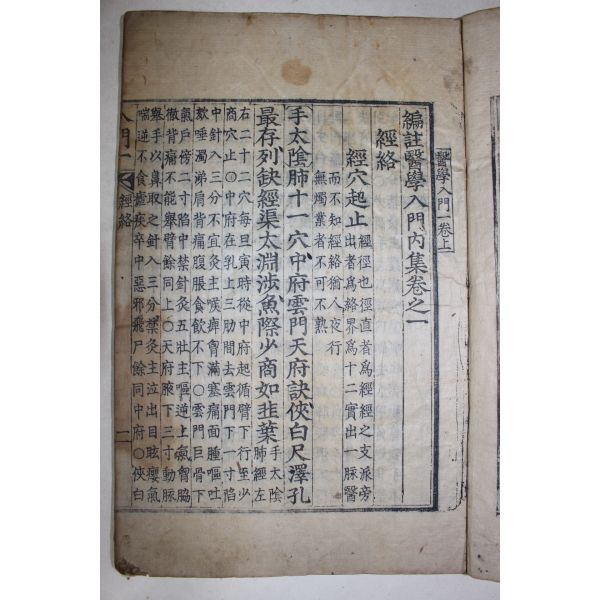 醫學入門一卷上
編註醫學入門內集卷之一
經絡
經穴起止 經徑也徑直者為經經之支派旁
出者爲絡界爲十二實出一脉醫
而不知經絡猶人夜行
無燭業者不可不熟
手太陰肺十一穴中府雲門天府訣俠白尺澤孔
最存列缺經渠太淵涉魚際少商如韭葉 手太陰
肺經左
右二十二穴每旦寅時從中府起循臂下行至少
商穴止○中府在乳上三肋間去雲門下一寸陷
中針入三分不宜灸主喉痺胷滿塞痛面腫嘔吐
欬唾濁涕肩背痛腹脹食飲不下○雲門巨骨下
氣戶傍二寸陷中禁針灸五壯主嘔逆上氣胷脇
徹背痛不能舉臂餘同上○天府腋下三寸動脉
舉手以鼻取之針入三分禁灸主泣出目眩癭氣
喘逆不食瘧疾卒中惡邪飛尸餘同中府○俠白
入門一 經絡 一